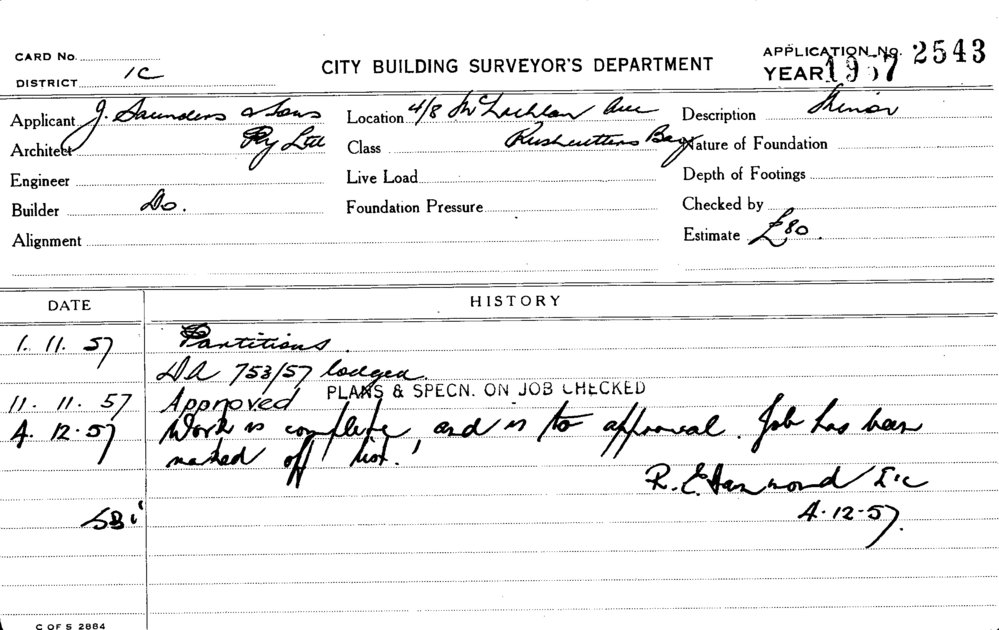 CARD No.
DISTRICT 1C
CITY BUILDING SURVEYOR'S DEPARTMENT
APPLICATION No. 2543
YEAR 1957
Applicant J. Saunders & Sons Location 4/8 McLachlan Ave Description Minor
Architect Pty Ltd Class Rushcutters Bay Nature of Foundation
Engineer Live Load Depth of Footings
Builder Do. Foundation Pressure Checked by
Alignment Estimate £80.
DATE HISTORY
1. 11. 57 Partitions.
DA 753/57 lodged.
PLANS & SPECN. ON JOB CHECKED
11. 11. 57 Approved
4. 12. 57 Work is complete, and is to approval. Job has been
marked off list.
R. E. Hammond
4. 12. 57.
C OF S 2884